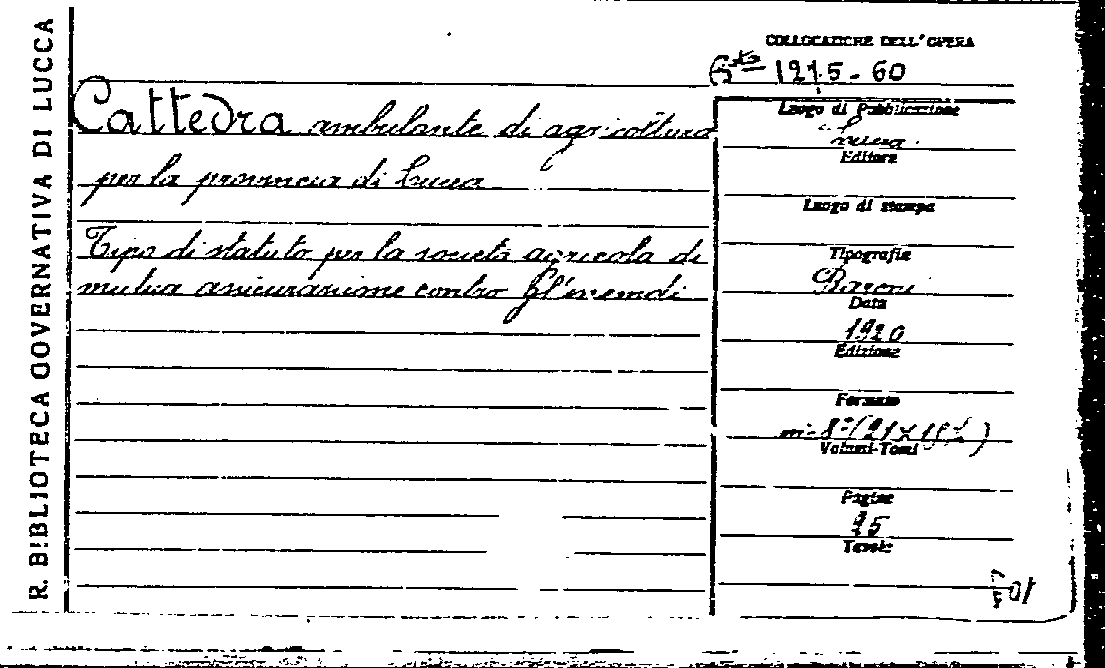 R. BIBLIOTECA GOVERNATIVA DI LUCCA
Cattedra ambulante di agricoltura
per la provincia di Lucca
Tipo di statuto per la società agricola di
mutua assicurazione contro gl'incendi
COLLOCAZIONE DELL'OPERA
1215-60
Luogo di Pubblicazione
Lucca
Editore
Luogo di stampa
Tipografia
Baroni
Data
1920
Edizione
Formato
in-8°(21×15½)
Volumi-Tomi
Pagine
15
Tavole